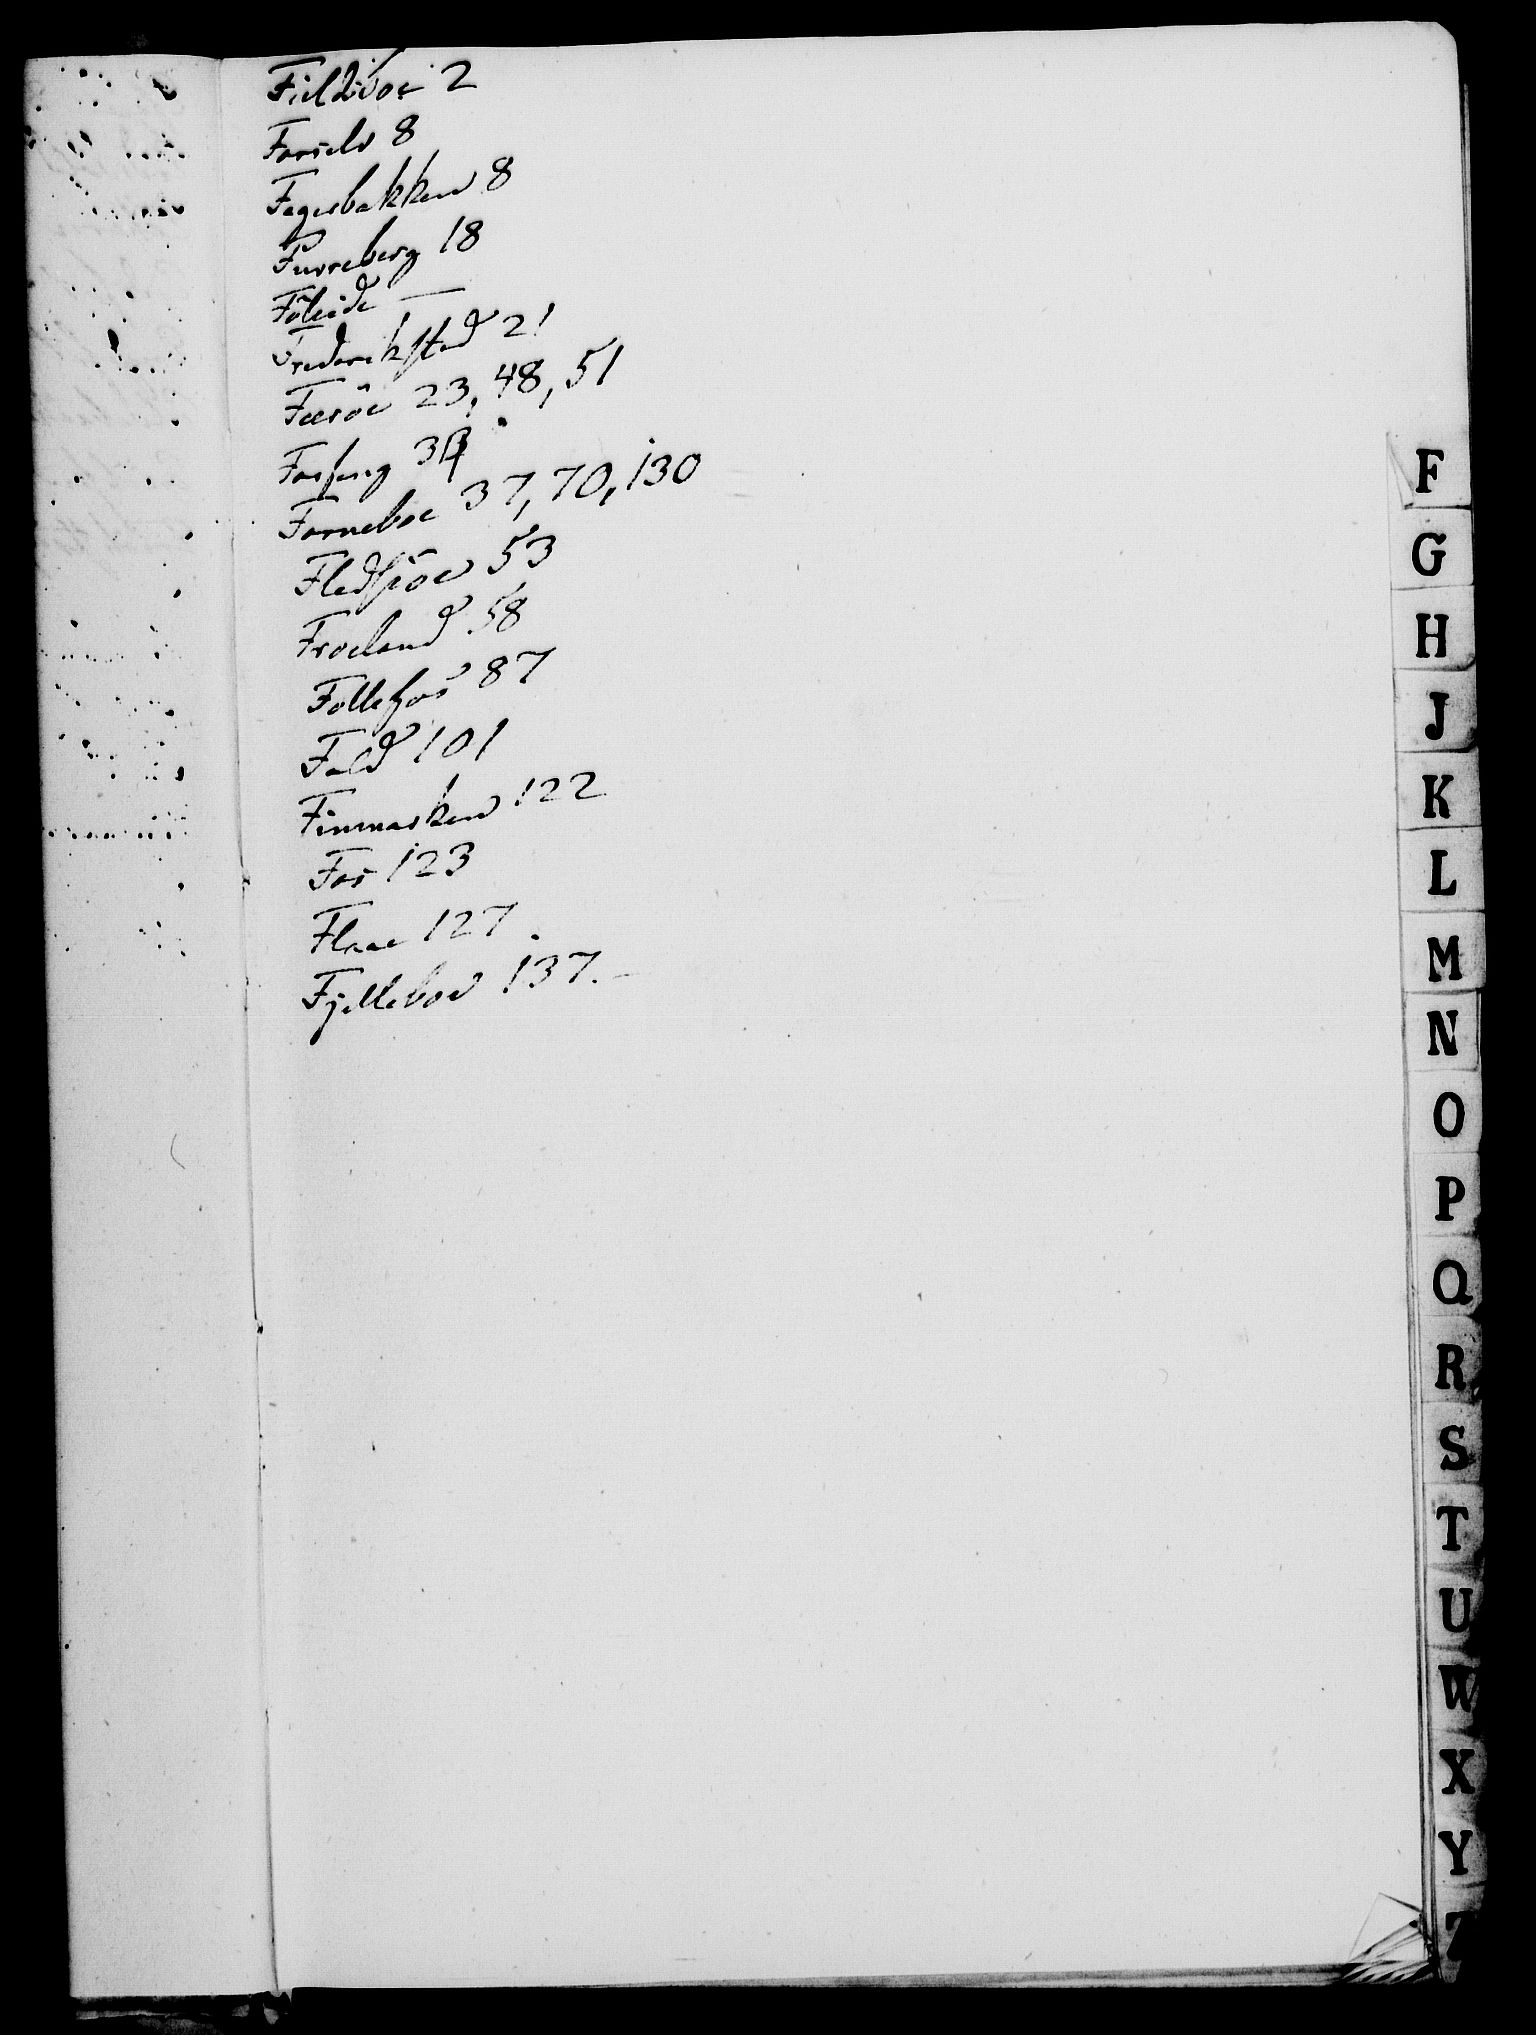 Fieldboe 2
Forselv 8
Fagerbakken 8
Furreberg 18
Föleide —
Frederikstad 21
Færöe 23, 48, 51
34
Forneboe 37, 70, 130
Fledsjöe 53
Froeland 58
Follefos 87
Fald 101
Finmarken 122
Fos 123
Flaae 127
Fjelleboe 137.
F
G
H
J
K
L
M
N
O
P
Q
R
S
T
U
W
X
Y